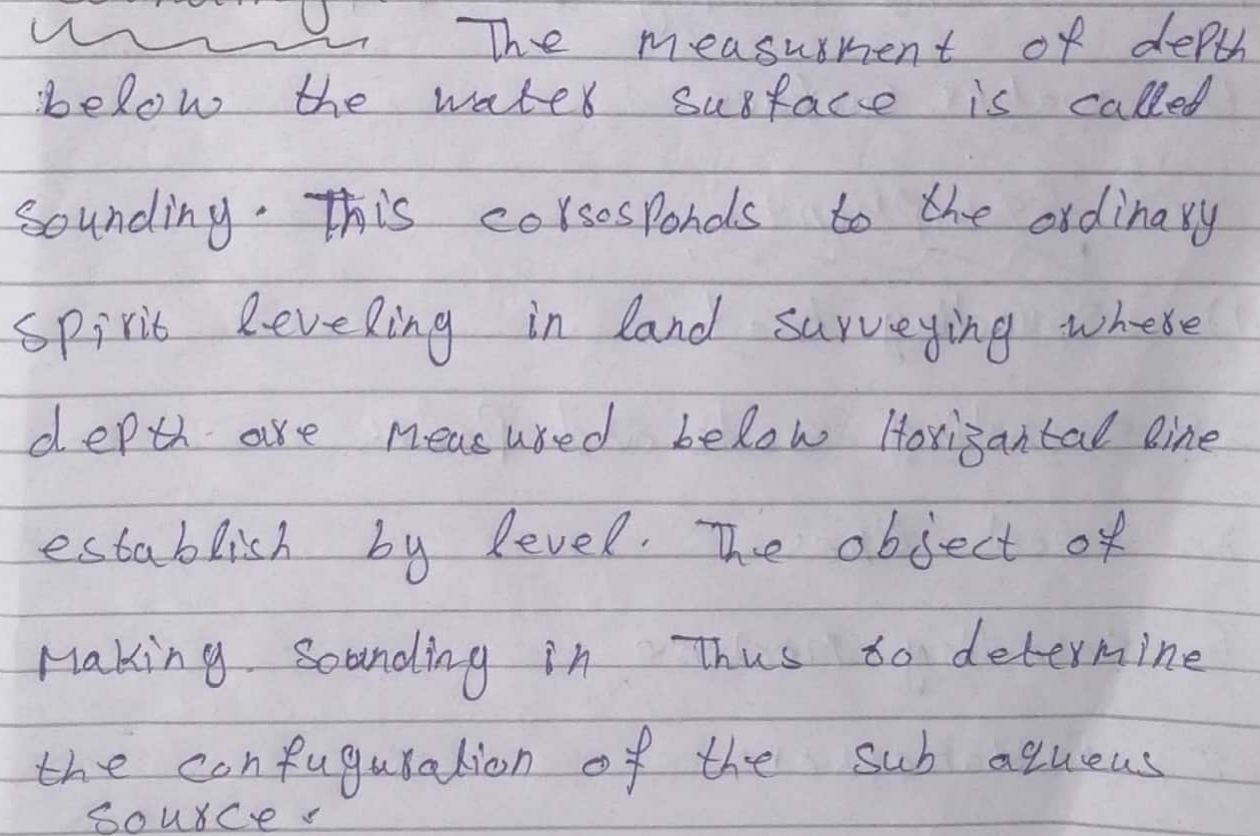 The measurment of depth
below the water surface is called
sounding. This corsosponds to the ordinary
spirit leveling in land surveying where
depth are measured below Horizantal line
establish by level. The object of
making. Sounding in Thus to determine
the confuguration of the sub aqueus
source.